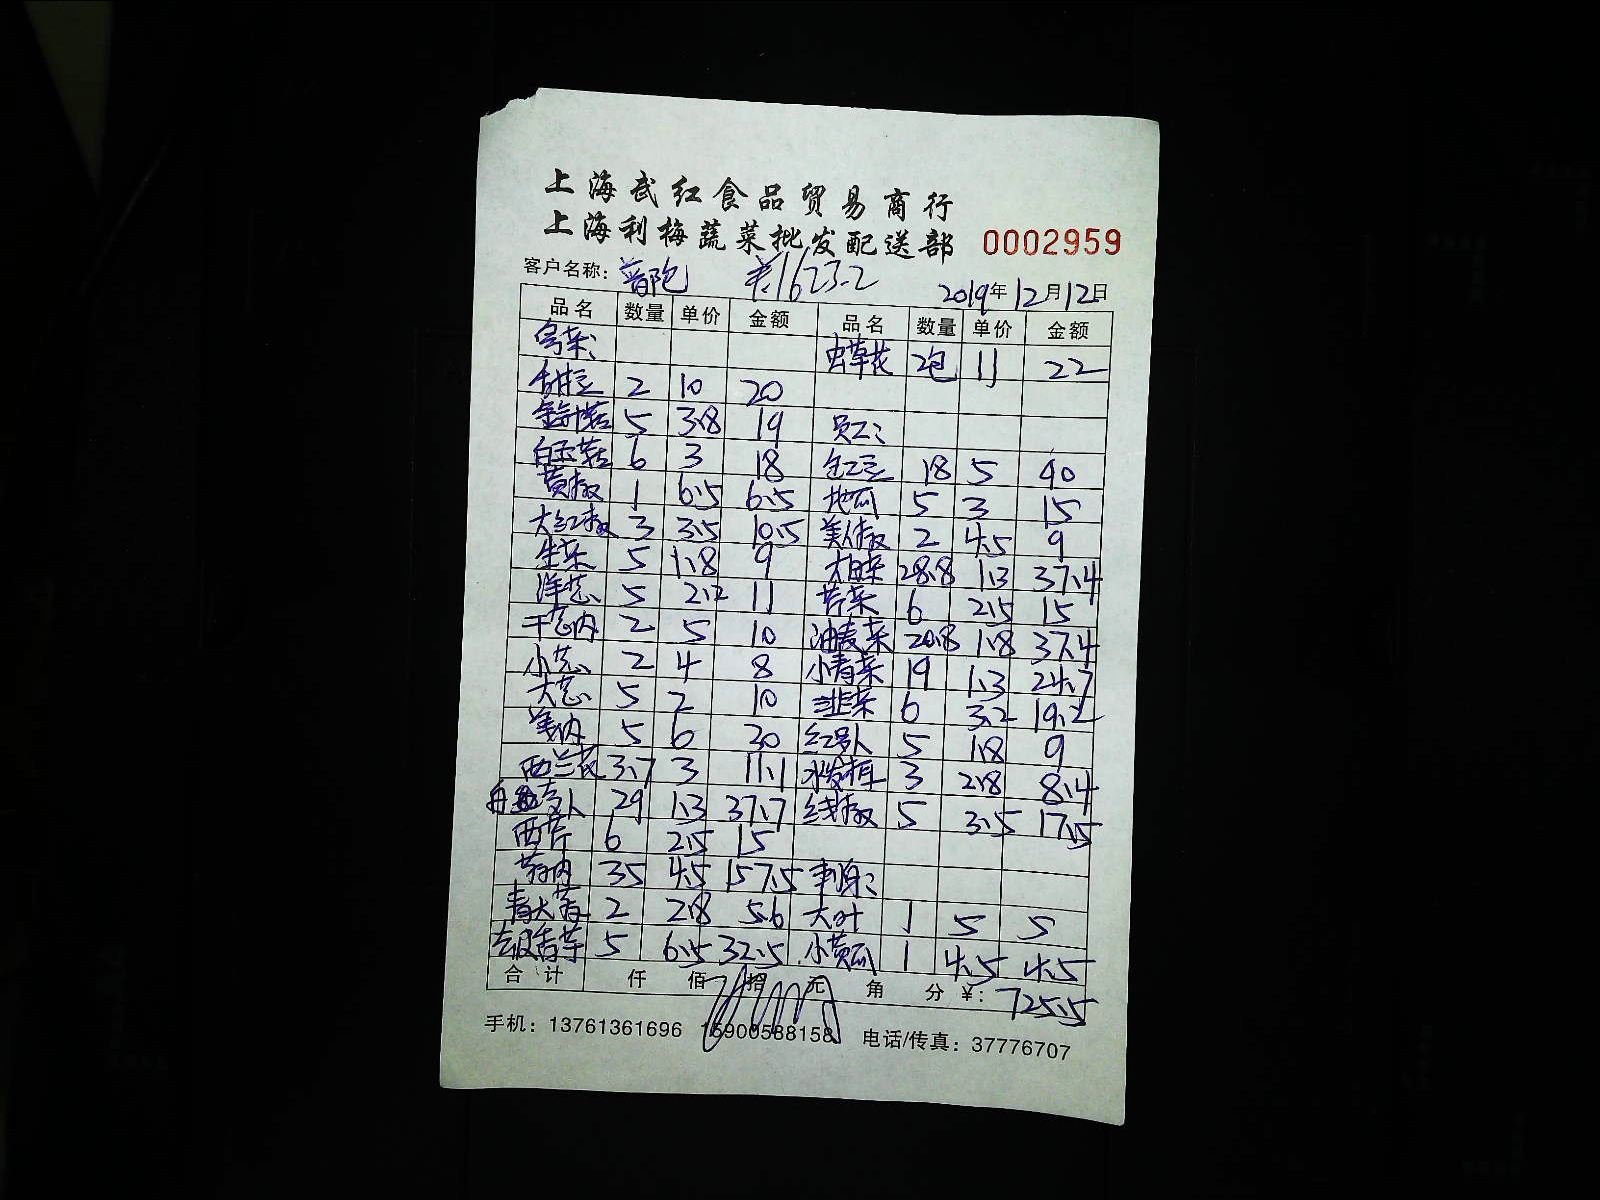 上海武红食品贸易商行
上海利梅蔬菜批发配送部 0002959
客户名称: 普陀 共1623.2 2019年12月12日
品名 数量 单价 金额 品名 数量 单价 金额
虫草花 2包 11 22
甜豆 2 10 20
金针菇 5 3.8 19 员工:
白玉菇 6 3 18 18 5 90
黄椒 1 6.5 6.5 地瓜 5 3 15
大红椒 3 3.5 10.5 美人椒 2 4.5 9
生菜 5 1.8 9 大白菜 28.8 1.3 37.4
洋葱 5 2.2 11 芹菜 6 2.5 15
干葱肉 2 5 10 油麦菜 20.8 1.8 37.4
小葱 2 4 8 小青菜 19 1.3 24.7
大葱 5 2 10 韭菜 6 3.2 19.2
姜肉 5 6 30 红萝卜 5 1.8 9
西兰花 3.7 3 11.1 水发木耳 3 2.8 8.4
29 1.3 37.7 线椒 5 3.5 17.5
西芹 6 2.5 15
蒜肉 35 4.5 157.5 刺身:
青大蒜 2 2.8 5.6 大叶 1 5 5
去皮香芋 5 6.5 32.5 小黄瓜 1 4.5 4.5
合计 仟 佰 拾 元 角 分 ¥: 725.5
手机: 13761361696 15900588158 电话/传真: 37776707